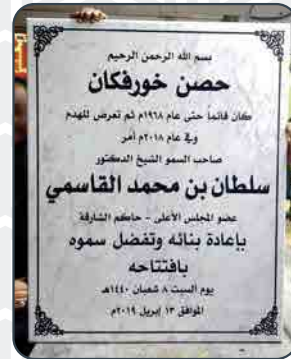 بسم الله الرحمن الرحيم
حصن خورفكان
كان قائماً حتى عام ١٩٦٨م ثم تعرض للهدم
وفي عام ٢٠١٨م أمر
صاحب السمو الشيخ الدكتور
سلطان بن محمد القاسمي
عضو المجلس الأعلى - حاكم الشارقة
بإعادة بنائه وتفضل سموه
بافتتاحه
يوم السبت ٨ شعبان ١٤٤٠هـ
الموافق ١٣ إبريل ٢٠١٩م